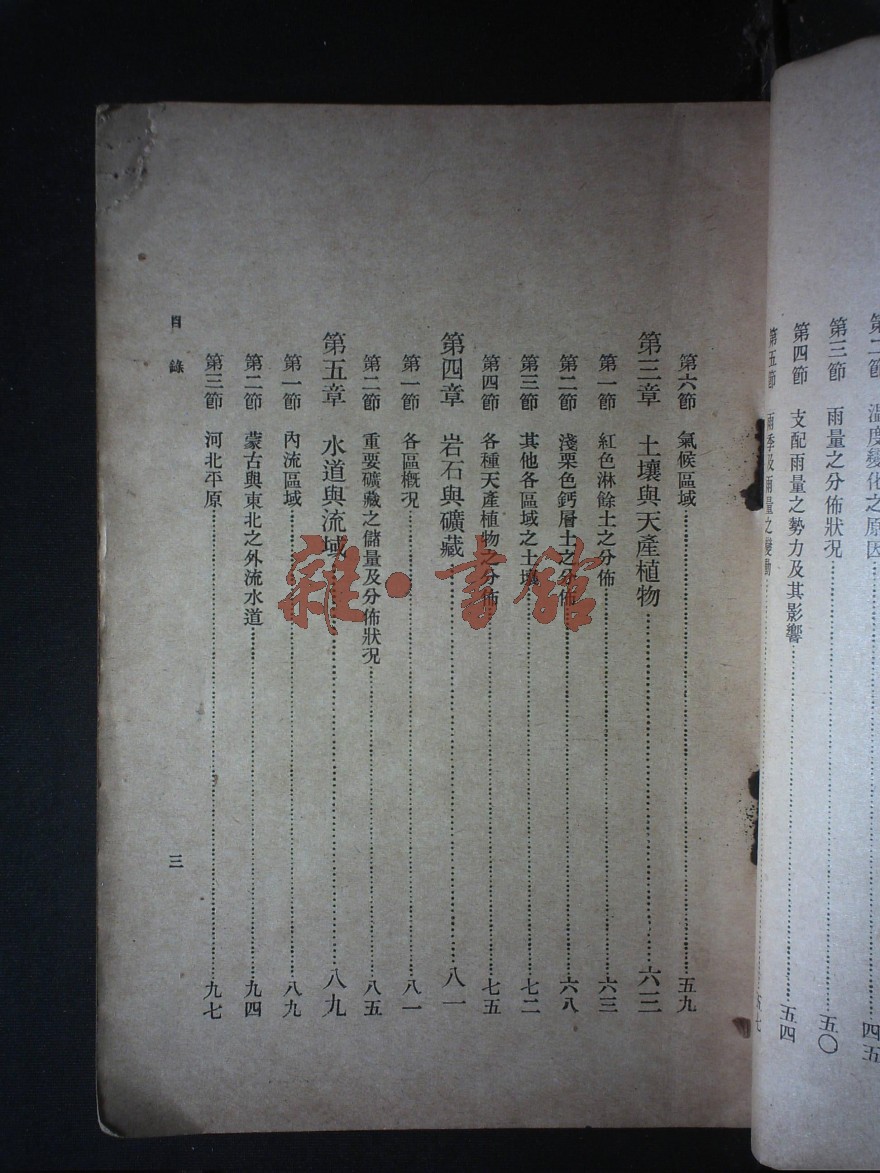 第二節 溫度變化之原因……四五
第三節 雨量之分佈狀况……五〇
第四節 支配雨量之勢力及其影響……五四
第五節 雨季及雨量之變動……五七
第六節 氣候區域……五九
第三章 土壤與天產植物……六三
第一節 紅色淋餘土之分佈……六三
第二節 淺栗色鈣層土之分佈……六八
第三節 其他各區域之土壤……七二
第四節 各種天產植物之分佈……七五
第四章 岩石與礦藏……八一
第一節 各區概况……八一
第二節 重要礦藏之儲量及分佈狀况……八五
第五章 水道與流域……八九
第一節 內流區域……八九
第二節 蒙古與東北之外流水道……九四
第三節 河北平原……九七
目錄
三
雜·書館